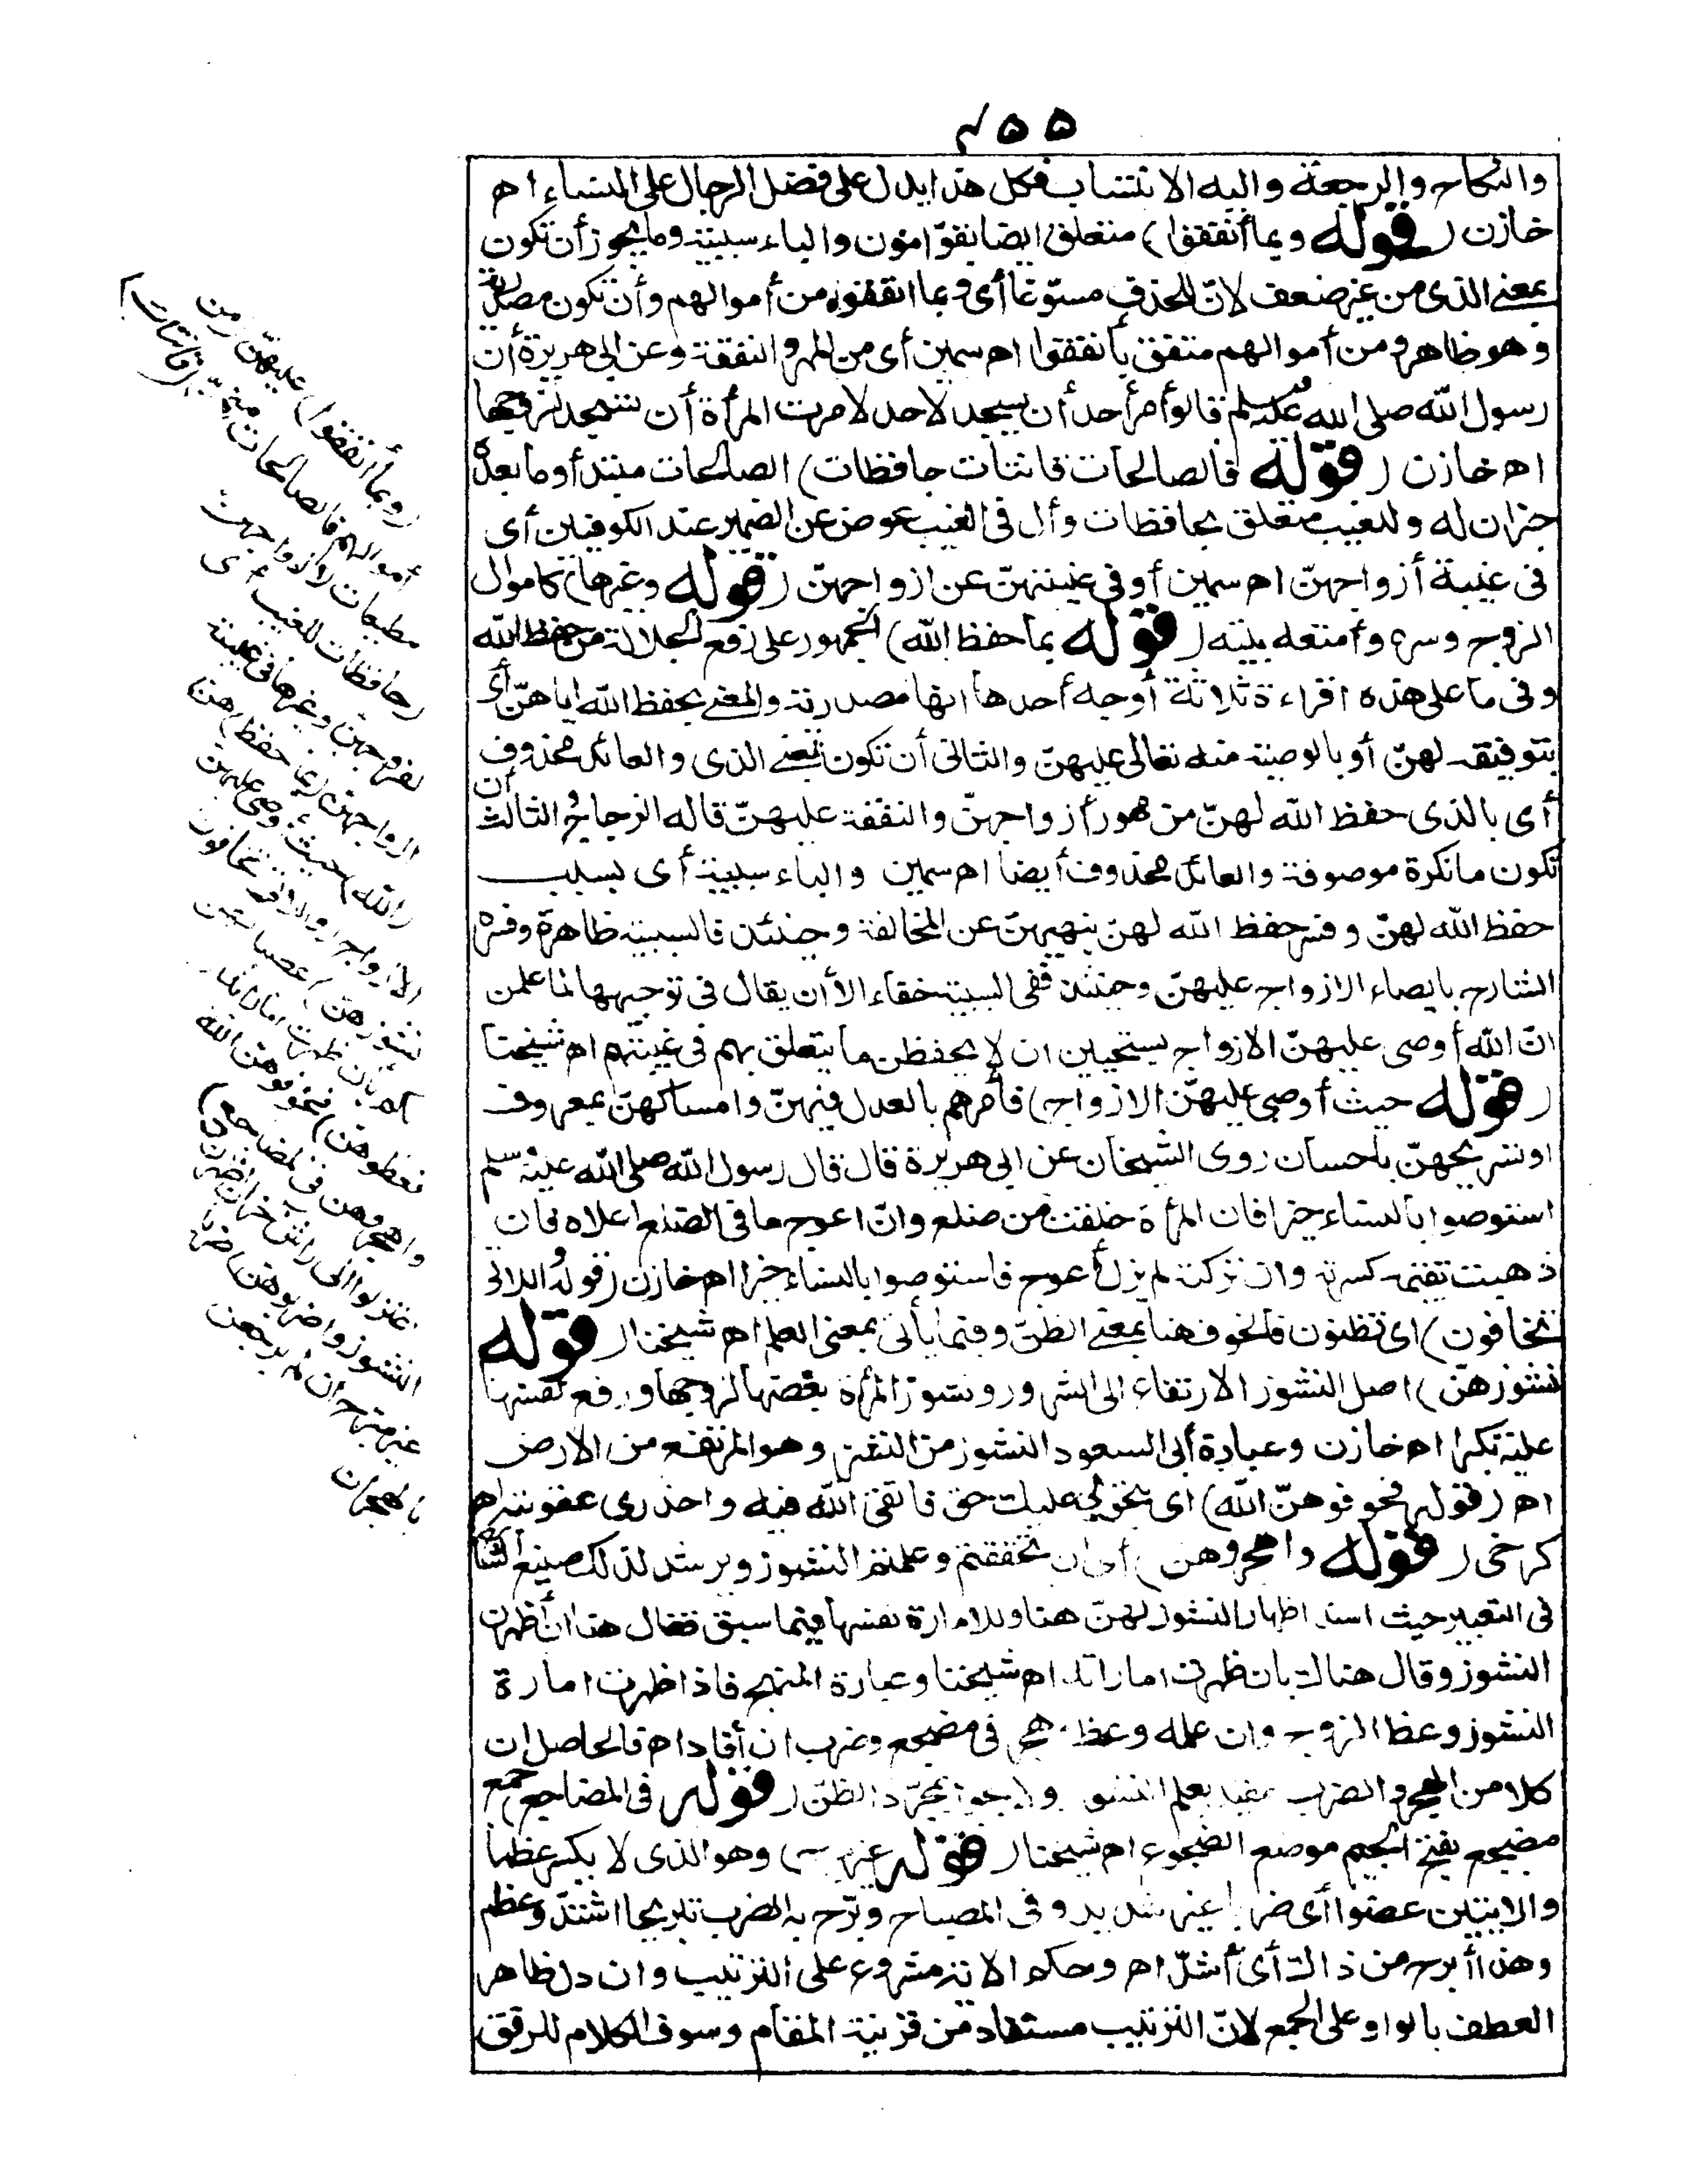 ٤٥٥
والنكاح والرجعة واليه الانتساب فكل هذا يدل على فضل الرجال على النساء اه
خازن (قوله وبما أنفقوا) متعلق ايضا بقوّامون والباء سببية وما يجوز أن تكون
بمعنى الذى من غير ضعف لانّ للحذف مسوّغا أى وبما انفقوه من أموالهم وأن تكون مصدرية
وهو ظاهر ومن أموالهم متعلق بأنفقوا اه سمين أى من المهر والنفقة وعن ابى هريرة أن
رسول الله صلى الله عليه وسلم قال لو أمر أحد أن يسجد لاحد لامرت المرأة أن تسجد لزوجها
اه خازن (قوله فالصالحات قانتات حافظات) الصالحات مبتدأ وما بعده
خبران له وللغيب متعلق بحافظات وأل فى الغيب عوض عن الضمير عند الكوفيين أى
فى غيبة أزواجهنّ اه سمين أو فى غيبتهنّ عن ازواجهنّ (قوله وغيرها) كاموال
الزوج وسره وأمتعة بيته (قوله بما حفظ الله) الجمهور على رفع الجلالة من حفظ الله
وفى ما على هذه القراءة ثلاثة أوجه أحدها انها مصدرية والمعنى بحفظ الله اياهنّ أى
بتوفيقه لهنّ أو بالوصية منه تعالى عليهنّ والثانى أن تكون بمعنى الذى والعائد محذوف
أى بالذى حفظ الله لهنّ من مهور أزواجهنّ والنفقة عليهنّ قاله الزجاج والثالث أن
تكون ما نكرة موصوفة والعائد محذوف أيضا اه سمين والباء سببية أى بسبب
حفظ الله لهنّ وفسر حفظ الله لهنّ بنهيهنّ عن المخالفة وحينئذ فالسببية ظاهرة وفسره
الشارح بايصاء الازواج عليهنّ وحينئذ ففى السببية خفاء الا أن يقال فى توجيهها لما علمن
انّ الله أوصى عليهنّ الازواج يستحيين ان لا يحفظن ما يتعلق بهم فى غيبتهم اه شيخنا
(قوله حيث أوصى عليهنّ الازواج) فأمرهم بالعدل فيهنّ وامساكهنّ بمعروف
اوتسريحهنّ باحسان روى الشيخان عن ابى هريرة قال قال رسول الله صلى الله عليه وسلم
استوصوا بالنساء خيرا فان المرأة خلقت من ضلع وانّ اعوج ما فى الضلع اعلاه فان
ذهبت تقيمه كسرته وان تركته لم يزل أعوج فاستوصوا بالنساء خيرا اه خازن (قوله اللاتى
تخافون) اى تظنون فالخوف هنا بمعنى الظنّ وفيما يأتى بمعنى العلم اه شيخنا (قوله
نشوزهنّ) اصل النشوز الارتفاع الى الشرور ونشوز المرأة بغضها لزوجها ورفع نفسها
عليه تكبرا اه خازن وعبارة أبى السعود النشوز من النشز وهو المرتفع من الارض
اه (قوله فخوفوهنّ الله) اى بنحو لى عليك حق فاتقى الله فيه واحذرى عقوبته اه
كرخى (قوله واهجروهن) أى ان تحققتم وعلمتم النشوز ويرشد لذلك صنيع الشارح
فى التعبير حيث اسند اظهار النشوز لهنّ هنا وللامارة نفسها فيما سبق فقال هنا ان أظهرن
النشوز وقال هناك بان ظهرت اماراته اه شيخنا وعبارة المنهج فاذا ظهرت امارة
النشوز وعظ الزوج وان علمه وعظ هجر فى مضجع وضرب ان أفاد اه فالحاصل ان
كلا من الهجر والضرب مقيد بعلم النشوز ولا يجوز بمجرّد الظنّ (قوله فى المضاجع) جمع
مضجع بفتح الجيم موضع الضجوع اه شيخنا (قوله غير مبرح) وهو الذى لا يكسر عظما
ولا يشين عضوا أى ضربا غير شديد وفى المصباح وبرّح به الضرب تبريحا اشتدّ وعظم
وهذا أبرح من ذاك أى أشدّ اه وحكم الآية مشروع على الترتيب وان دل ظاهر
العطف بالواو على الجمع لانّ الترتيب مستفاد من قرينة المقام وسوق الكلام للرفق
(وبما أنفقوا) عليهنّ (من
أموالهم فالصالحات) منهنّ (قانتات)
مطيعات لازواجهن
(حافظات للغيب) أى
لفروجهن وغيرها فى غيبة
ازواجهن (بما حفظ) هن
(الله) حيث أوصى عليهن
الأزواج (واللاتى تخافون
نشوزهن) عصيانهن
لكم بأن ظهرت اماراته
(فعظوهن) فخوفوهن الله
(واهجروهن فى المضاجع)
اعتزلوا الى فراش آخر ان أظهرن
النشوز (واضربوهن) ضربا
غير مبرح ان لم يرجعن
بالهجران